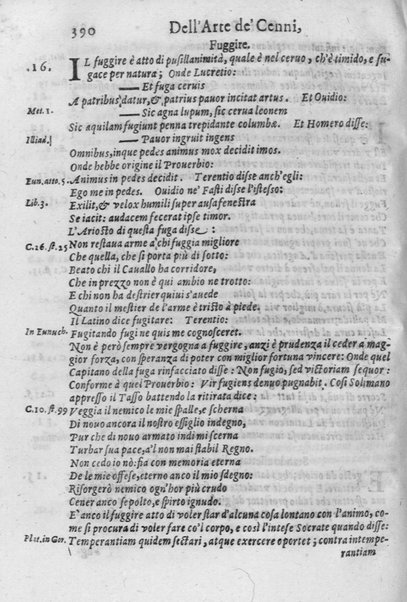 390 Dell'Arte de' Cenni,
Fuggire.
.16. IL fuggire è atto di pusillanimità, quale è nel ceruo, ch'è timido, e fu-
gace per natura; Onde Lucretio:
—— Et fuga ceruis
A patribus datur, & patrius pauor incitat artus. Et Ouidio:
Met. 1. —— Sic agna lupum, sic cerua leonem
Sic aquilam fugiunt penna trepidante columbæ. Et Homero disse:
Iliad. —— Pauor ingruit ingens
Omnibus, inque pedes animus mox decidit imos.
Onde hebbe origine il Prouerbio:
Eun. atto. 5. Animus in pedes decidit. Terentio disse anch'egli:
Ego me in pedes. Ouidio ne' Fasti disse l'istesso:
Lib. 3. Exilit, & velox humili super ausa fenestra
Se iacit: audacem fecerat ipse timor.
L'Ariosto di questa fuga disse:
C. 16. st. 25 Non restaua arme a chi fuggia migliore
Che quella, che si porta più di sotto:
Beato chi il Cauallo ha corridore,
Che in prezzo non è quì ambio ne trotto:
E chi non ha destrier quiui s'auede
Quanto il mestier de l'arme è tristo à piede.
Il Latino dice fugitare: Terentio:
In Eunuch. Fugitando fui ne quis me cognosceret.
Non è però sempre vergogna a fuggire, anzi è prudenza il ceder a mag-
gior forza, con speranza di poter con miglior fortuna vincere: Onde quel
Capitano della fuga rinfacciato disse: Non fugio, sed victoriam sequor:
Conforme à quel Prouerbio: Vir fugiens denuo pugnabit. Così Solimano
appresso il Tasso battendo la ritirata dice:
C. 10. st. 99 Veggia il nemico le mie spalle, e scherna
Di nouo ancora il nostro essiglio indegno,
Pur che di nouo armato indi mi scerna
Turbar sua pace, a'l non mai stabil Regno.
Non cedo io nò: fia con memoria eterna
De le mie offese, eterno anco il mio sdegno:
Risorgerò nemico ogn'hor più crudo
Cener anco sepolto, e spirto ignudo.
E' anco il fuggire atto di voler star d'alcuna cosa lontano con l'animo, co-
me si procura di voler fare co'l corpo, e così l'intese Socrate quando disse:
Plat. in Gor. Temperantiam quidem sectari, atque exercere oportet; contra intempe-
rantiam